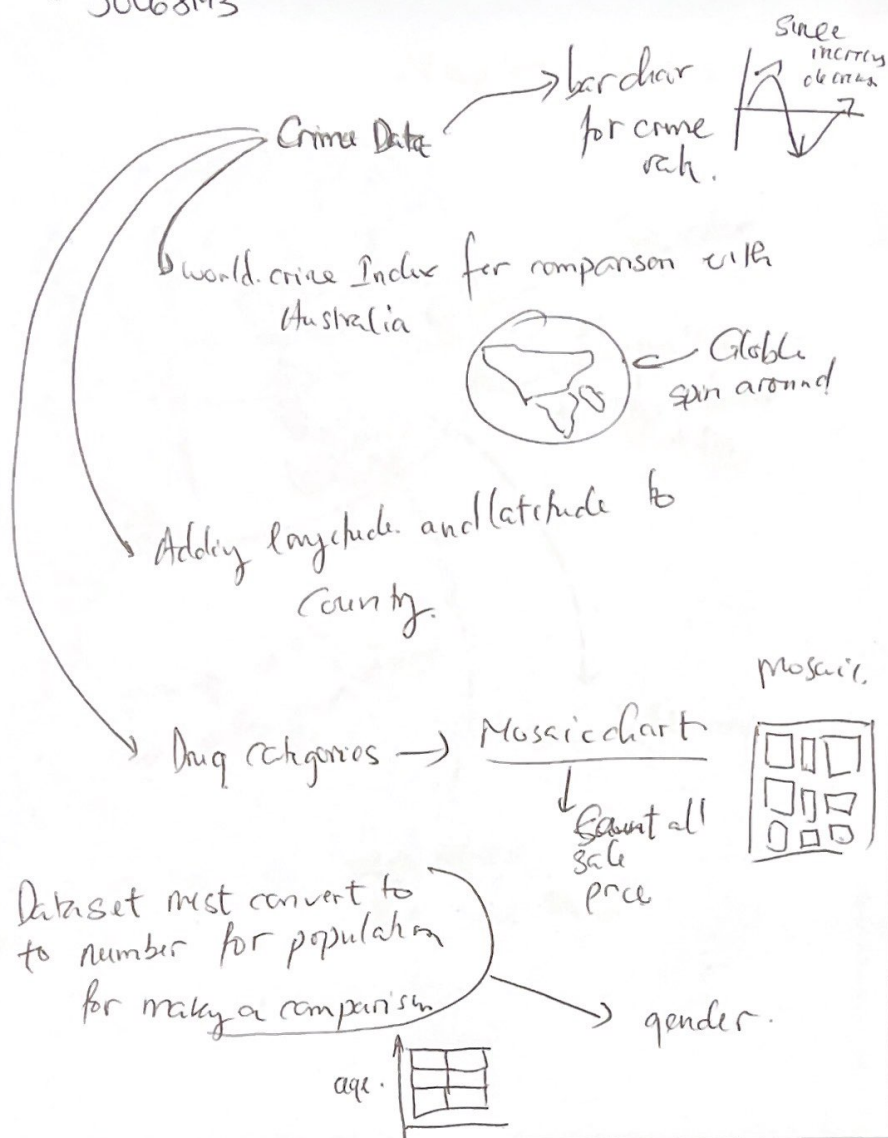 Since
increas
decreas
bar char
for crime
rate.
Crime Data
world.crime Index for comparison with
Australia
Globle
spin around
Adding longitude. and latitude to
County.
mosaic.
Drug categories → Mosaic chart
Count all
sale
price
Dataset must convert to
to number for population
for making a comparism
gender.
age.